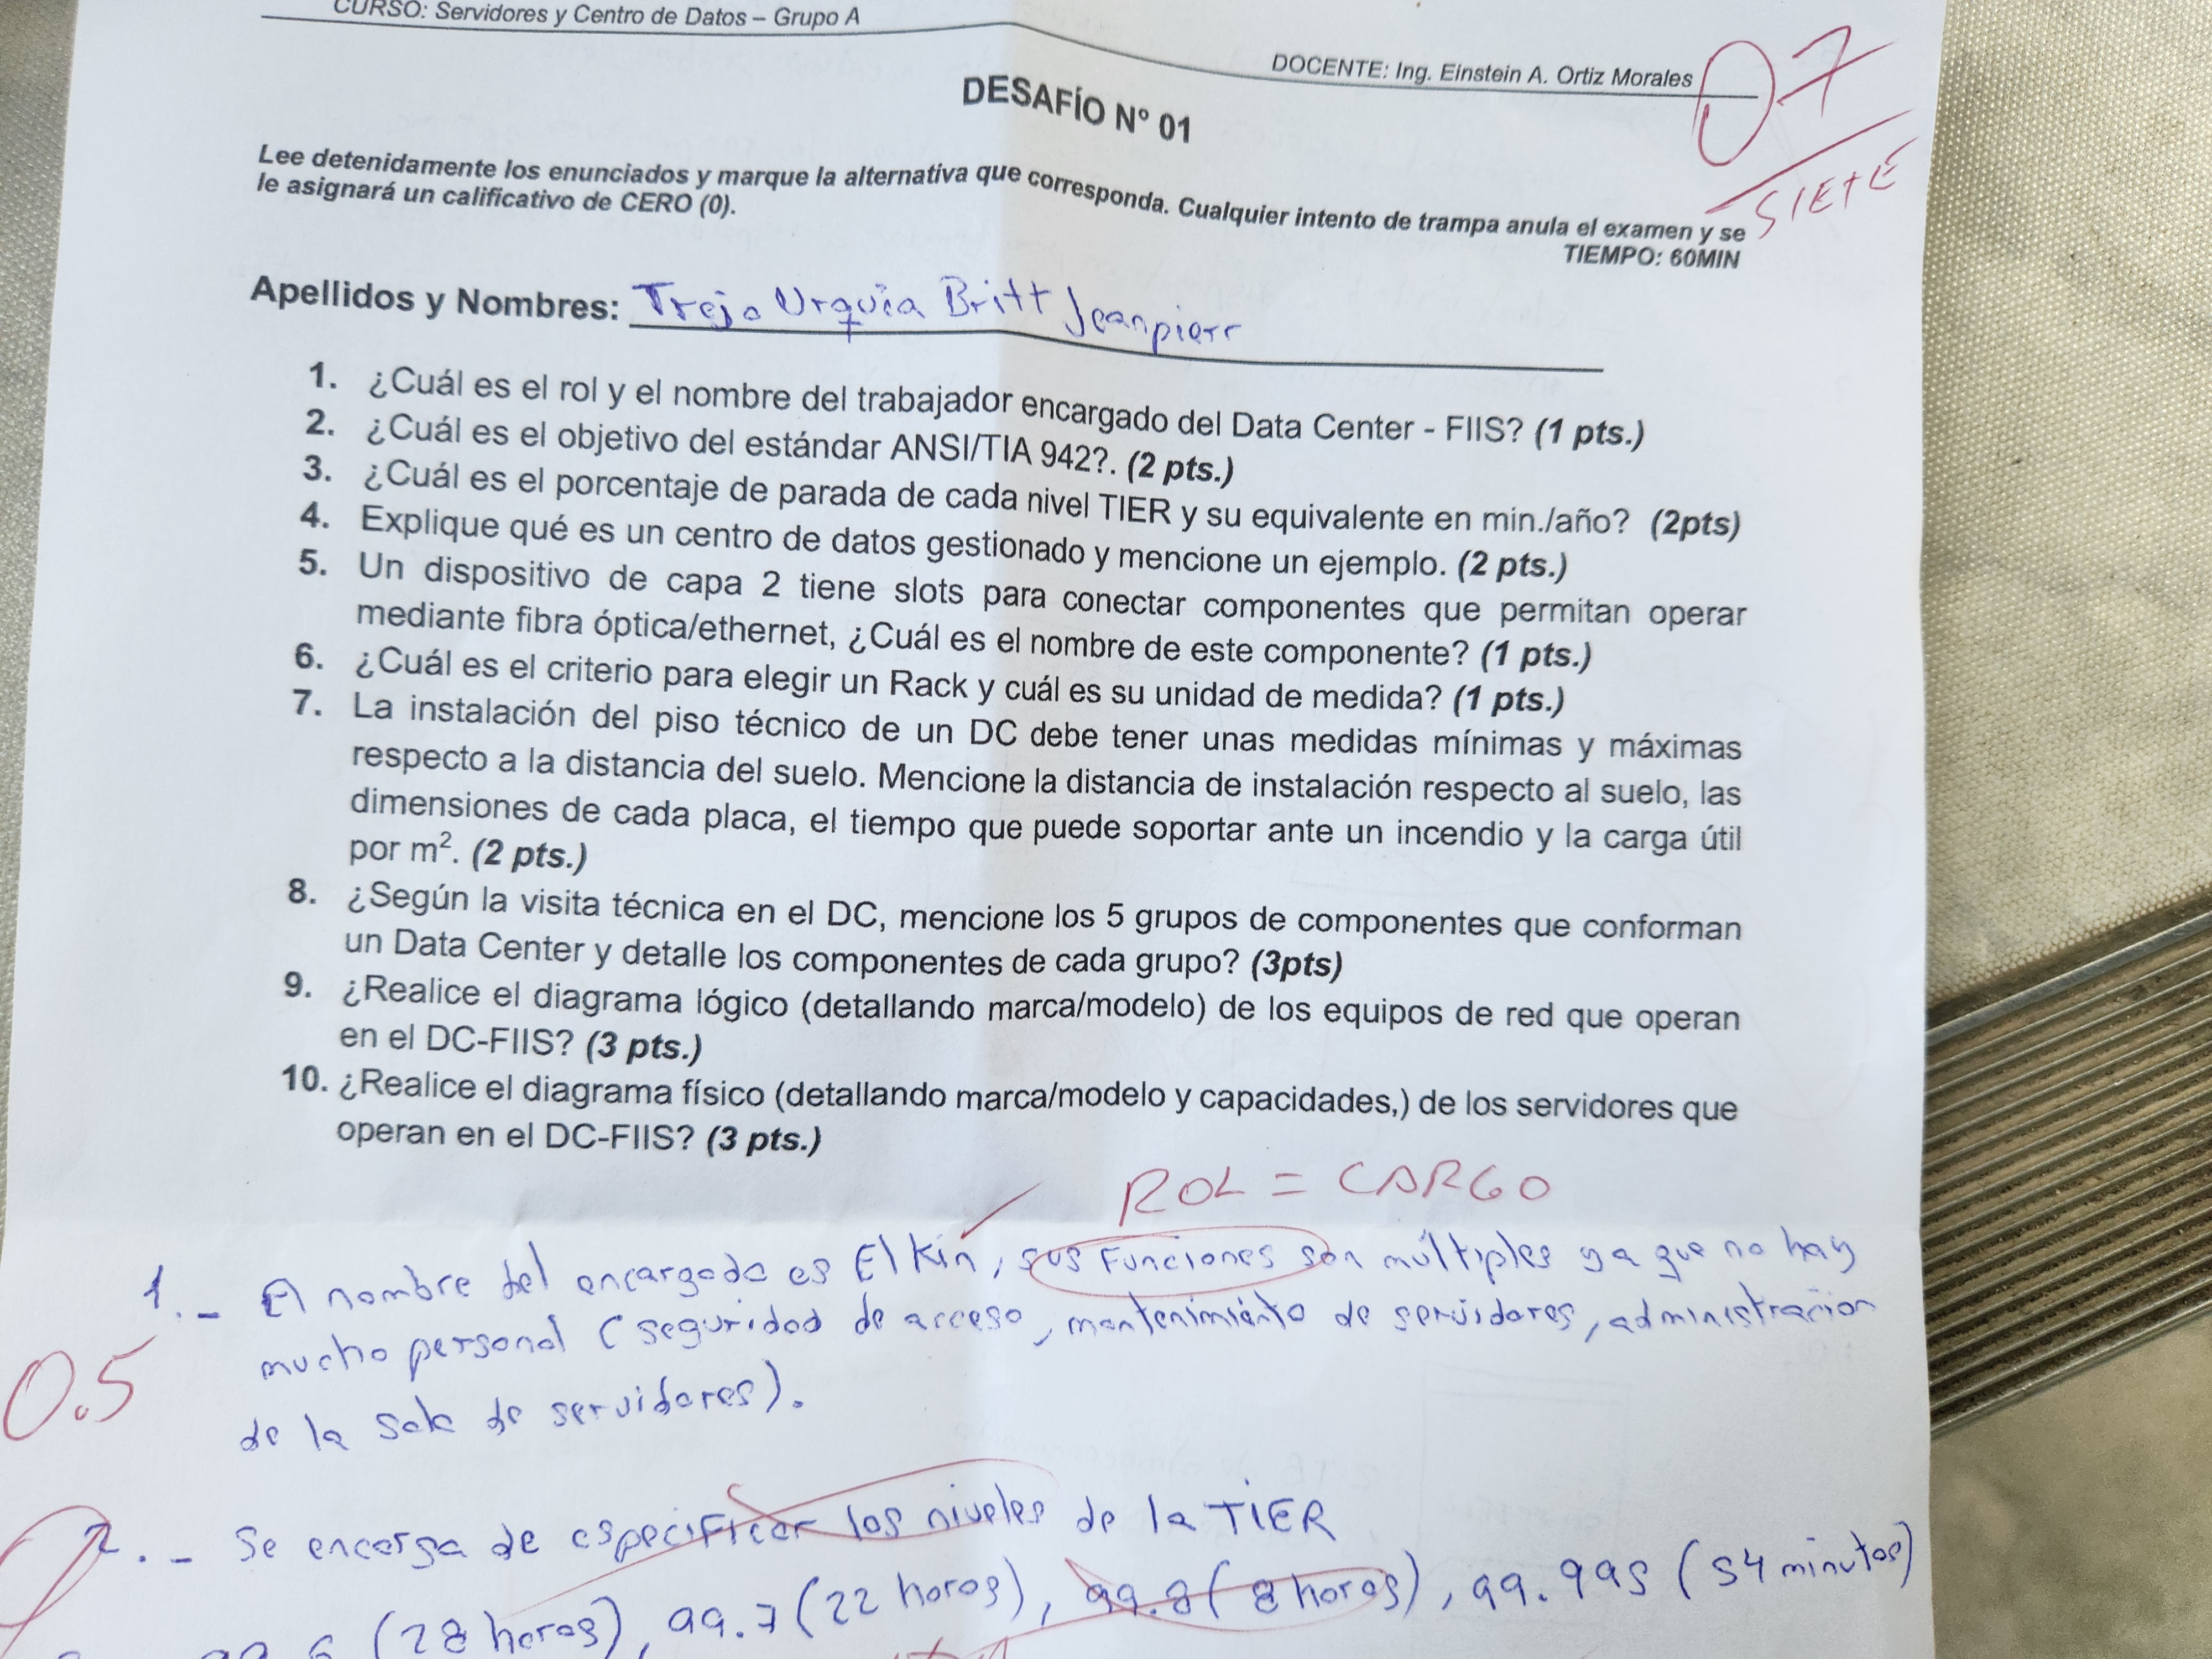 CURSO: Servidores y Centro de Datos – Grupo A
DOCENTE: Ing. Einstein A. Ortiz Morales
07
SIETE
DESAFÍO N° 01
Lee detenidamente los enunciados y marque la alternativa que corresponda. Cualquier intento de trampa anula el examen y se
le asignará un calificativo de CERO (0).
TIEMPO: 60MIN
Apellidos y Nombres: Trejo Urquia Britt Jeanpierr
1. ¿Cuál es el rol y el nombre del trabajador encargado del Data Center - FIIS? (1 pts.)
2. ¿Cuál es el objetivo del estándar ANSI/TIA 942?. (2 pts.)
3. ¿Cuál es el porcentaje de parada de cada nivel TIER y su equivalente en min./año? (2pts)
4. Explique qué es un centro de datos gestionado y mencione un ejemplo. (2 pts.)
5. Un dispositivo de capa 2 tiene slots para conectar componentes que permitan operar
mediante fibra óptica/ethernet, ¿Cuál es el nombre de este componente? (1 pts.)
6. ¿Cuál es el criterio para elegir un Rack y cuál es su unidad de medida? (1 pts.)
7. La instalación del piso técnico de un DC debe tener unas medidas mínimas y máximas
respecto a la distancia del suelo. Mencione la distancia de instalación respecto al suelo, las
dimensiones de cada placa, el tiempo que puede soportar ante un incendio y la carga útil
por m². (2 pts.)
8. ¿Según la visita técnica en el DC, mencione los 5 grupos de componentes que conforman
un Data Center y detalle los componentes de cada grupo? (3pts)
9. ¿Realice el diagrama lógico (detallando marca/modelo) de los equipos de red que operan
en el DC-FIIS? (3 pts.)
10. ¿Realice el diagrama físico (detallando marca/modelo y capacidades,) de los servidores que
operan en el DC-FIIS? (3 pts.)
ROL = CARGO
1.- El nombre del encargado es Elkin, sus funciones son múltiples ya que no hay
mucho personal (seguridad de acceso, mantenimiento de servidores, administración
0.5
de la sala de servidores).
2.- Se encarga de especificar los niveles de la TIER
(28 horas), 99.7 (22 horas), 99.8 (8 horas), 99.995 (54 minutos)